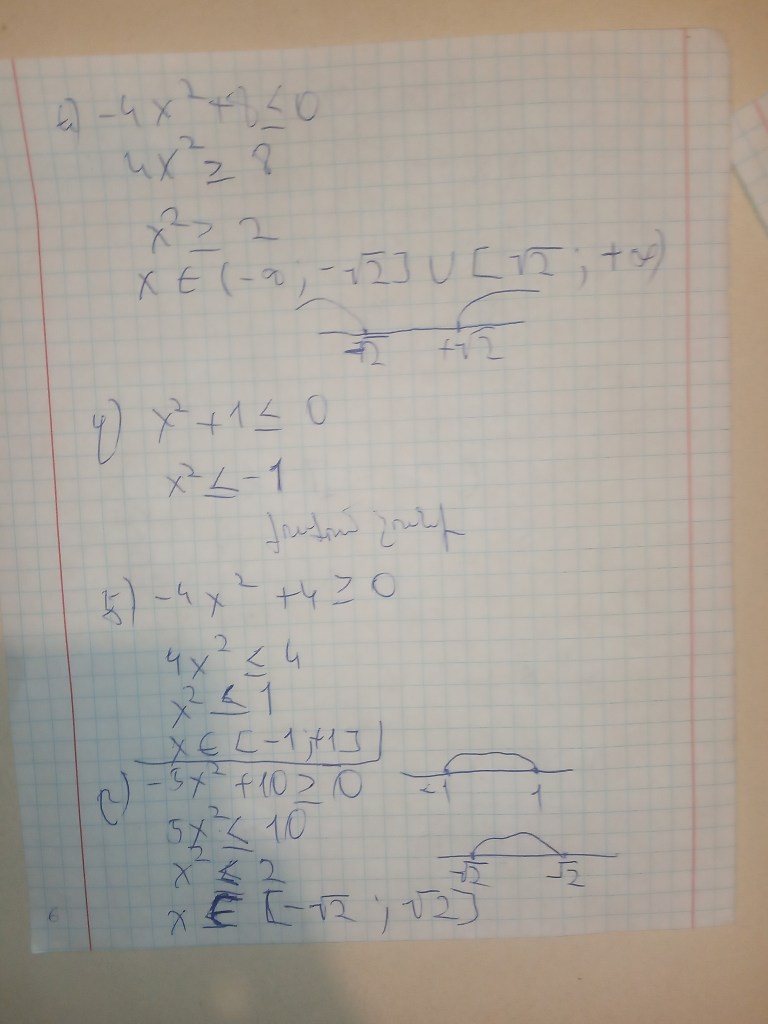 -4x² + 8 ≤ 0
4x² ≥ 8
x² ≥ 2
x ∈ (-∞; -√2] ∪ [√2; +∞)
-√2 +√2
x² + 1 ≤ 0
x² ≤ -1
-4x² + 4 ≥ 0
4x² ≤ 4
x² ≤ 1
x ∈ [-1; +1]
-1 1
-5x² + 10 ≥ 0
5x² ≤ 10
x² ≤ 2
-√2 √2
x ∈ [-√2; √2]
6